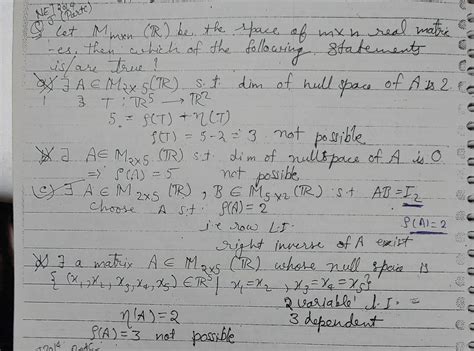 NET 2018 (Part C)
Q) Let M_{m×n} (ℝ) be the space of m×n real matric
-es, then which of the following statements
is/are true!
a) ∃ A ∈ M_{2×5}(ℝ) s.t dim of null space of A is 2
∃ T : ℝ^5 → ℝ^2
5 = ρ(T) + η(T)
ρ(T) = 5-2 = 3 not possible
∃ A ∈ M_{2×5} (ℝ) s.t dim of nullspace of A is 0
⇒ ρ(A) = 5 not possible
c) ∃ A ∈ M_{2×5} (ℝ), B ∈ M_{5×2} (ℝ) : st AB = I_2
Choose A s.t. ρ(A) = 2 ρ(A) = 2
i.e row L.I.
right inverse of A exist
∃ a matrix A ∈ M_{2×5} (ℝ) whose null space is
{ (x_1, x_2, x_3, x_4, x_5) ∈ ℝ^5 | x_1 = x_2 , x_3 = x_4 = x_5 }
2 variable L.I. =
η(A) = 2 3 dependent
ρ(A) = 3 not possible